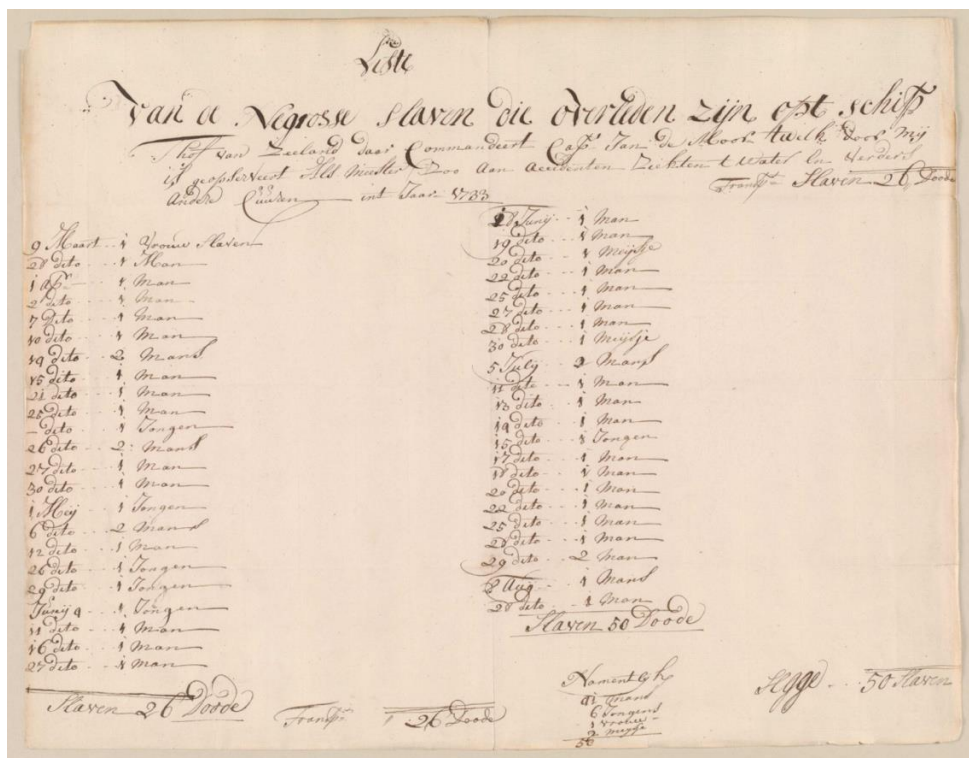 Liste
Van de Negrosse Slaven die Overleden zijn opt schip
Thof van Zeeland daar Commandeert Capt Jan de Moor twelk door mij
is geobserveert Als Meester Zoo Aan accidenten Ziekten t water En Verders
Andere int Jaar 1733
9 Maart 1 Vrouw Slaven
28 dito 1 Man
1 Apr 1 Man
2 dito 1 Man
7 dito 1 Man
10 dito 1 Man
14 dito 2 Mans
15 dito 1 Man
21 dito 1 Man
25 dito 1 Man
- dito 1 Jongen
26 dito 2 Mans
27 dito 1 Man
30 dito 1 Man
1 Meij 1 Jongen
6 dito 2 Mans
12 dito 1 Man
26 dito 1 Jongen
29 dito 1 Jongen
Junij 9 1 Jongen
11 dito 1 Man
16 dito 1 Man
27 dito 1 Man
Slaven 26 Doode
Transpt 26 Doode
Transpt Slaven 26 Doode
18 Junij 1 Man
19 dito 1 Man
20 dito 1 Meijsje
22 dito 1 Man
25 dito 1 Man
27 dito 1 Man
28 dito 1 Man
30 dito 1 Meijsje
5 Julij 2 Mans
11 dito 1 Man
13 dito 1 Man
14 dito 1 Man
15 dito 1 Jongen
17 dito 1 Man
18 dito 1 Man
20 dito 1 Man
22 dito 1 Man
25 dito 1 Man
28 dito 1 Man
29 dito 2 Man
2 Aug 1 Mans
28 dito 1 Man
Slaven 50 Doode
Namentlijk
41 mans
6 Jongens
1 vrouw
2 meijsje
50
Segge 50 Slaven